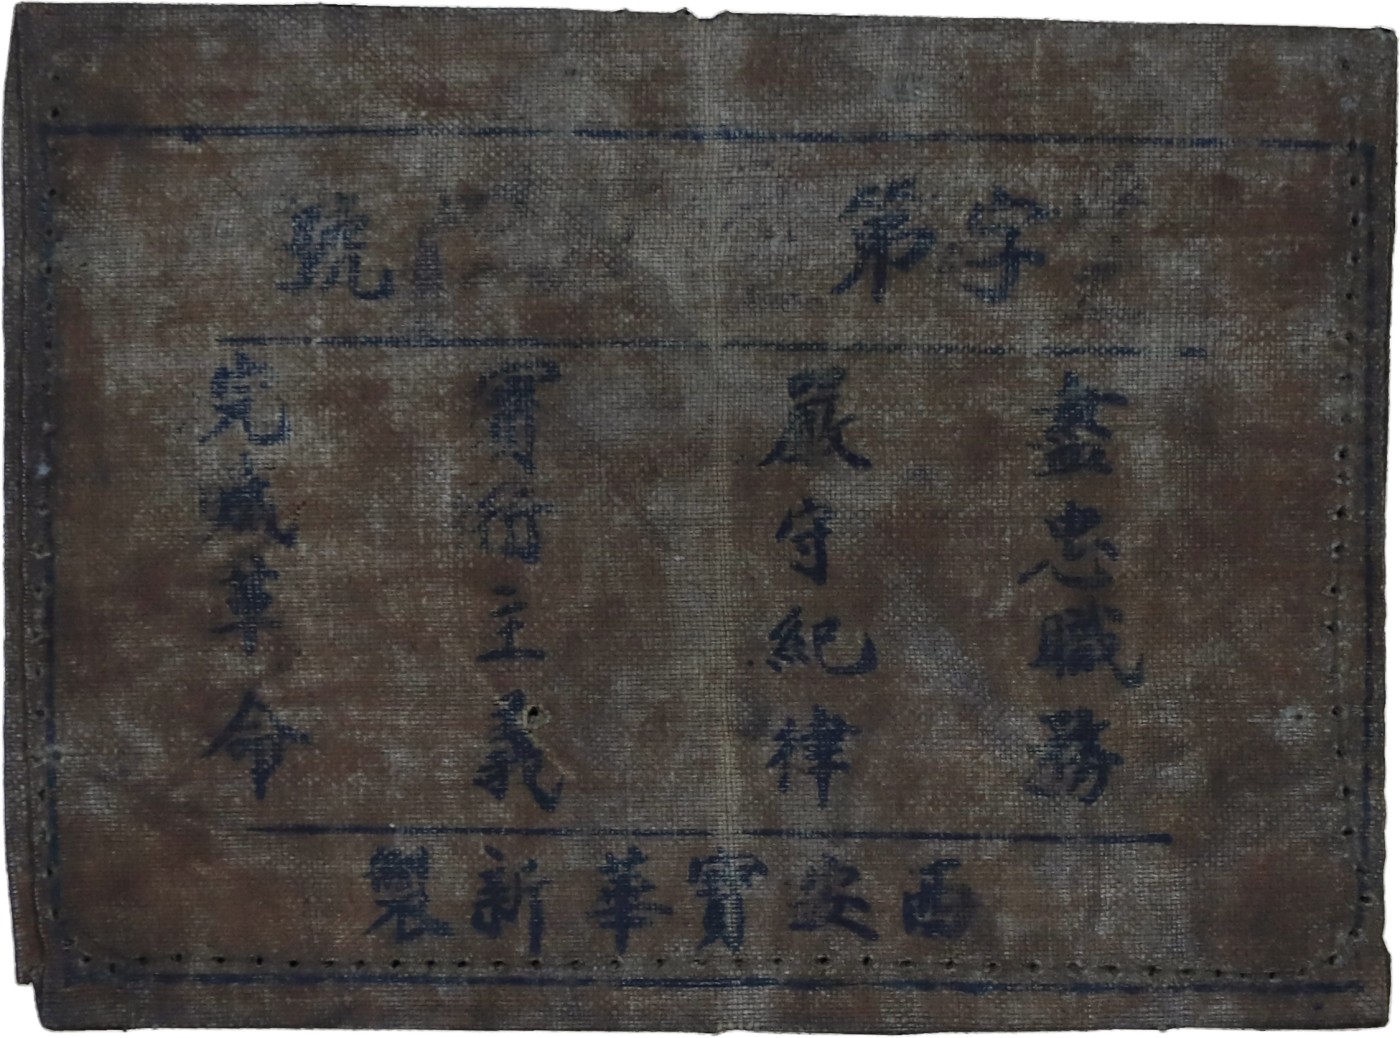 字第 號
盡忠職務
嚴守紀律
實行主義
完成革命
西安寶華新製